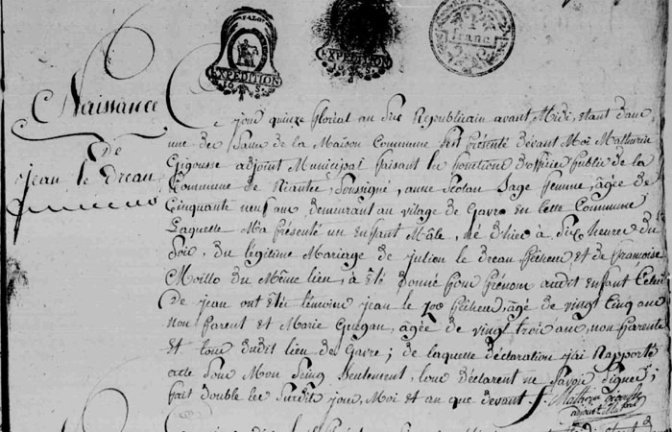 EXPEDITION
EXPEDITION
1
franc
Naissance
de
jean le dreau
Ce jour quinze floréal an Six Republicain avant Midi, étant dans
une des Sale de la Maison Commune Est présenté devant Moi Mathurin
Gigousse adjoint Municipal faisant les fonctions d'officier public de la
Commune de Riantec Soussigné, anne Scolan Sage femme, âgée de
Cinquante neuf ans demeurant au vilage de Gavre en cette Commune
Laquelle Ma présenté un Enfant Mâle, né d'hier à Six heure du
Soir, du légitime Mariage de julien le dreau pécheur et de francoise
Moello du Même lieu, à été donné pour prénom audit enfant Celui
de jean ont été témoins jean le pécheur, âgé de vingt Cinq ans
non parent et Marie Guegan, âgée de vingt trois ans non parente
et tous dudit lieu de Gavre ; de laquelle déclaration j'ai Rapporté
acte Sous Mon Seing Seulement, tous déclarent ne Savoir Signer ;
fait double les Surdits jour, Moi et an que devant